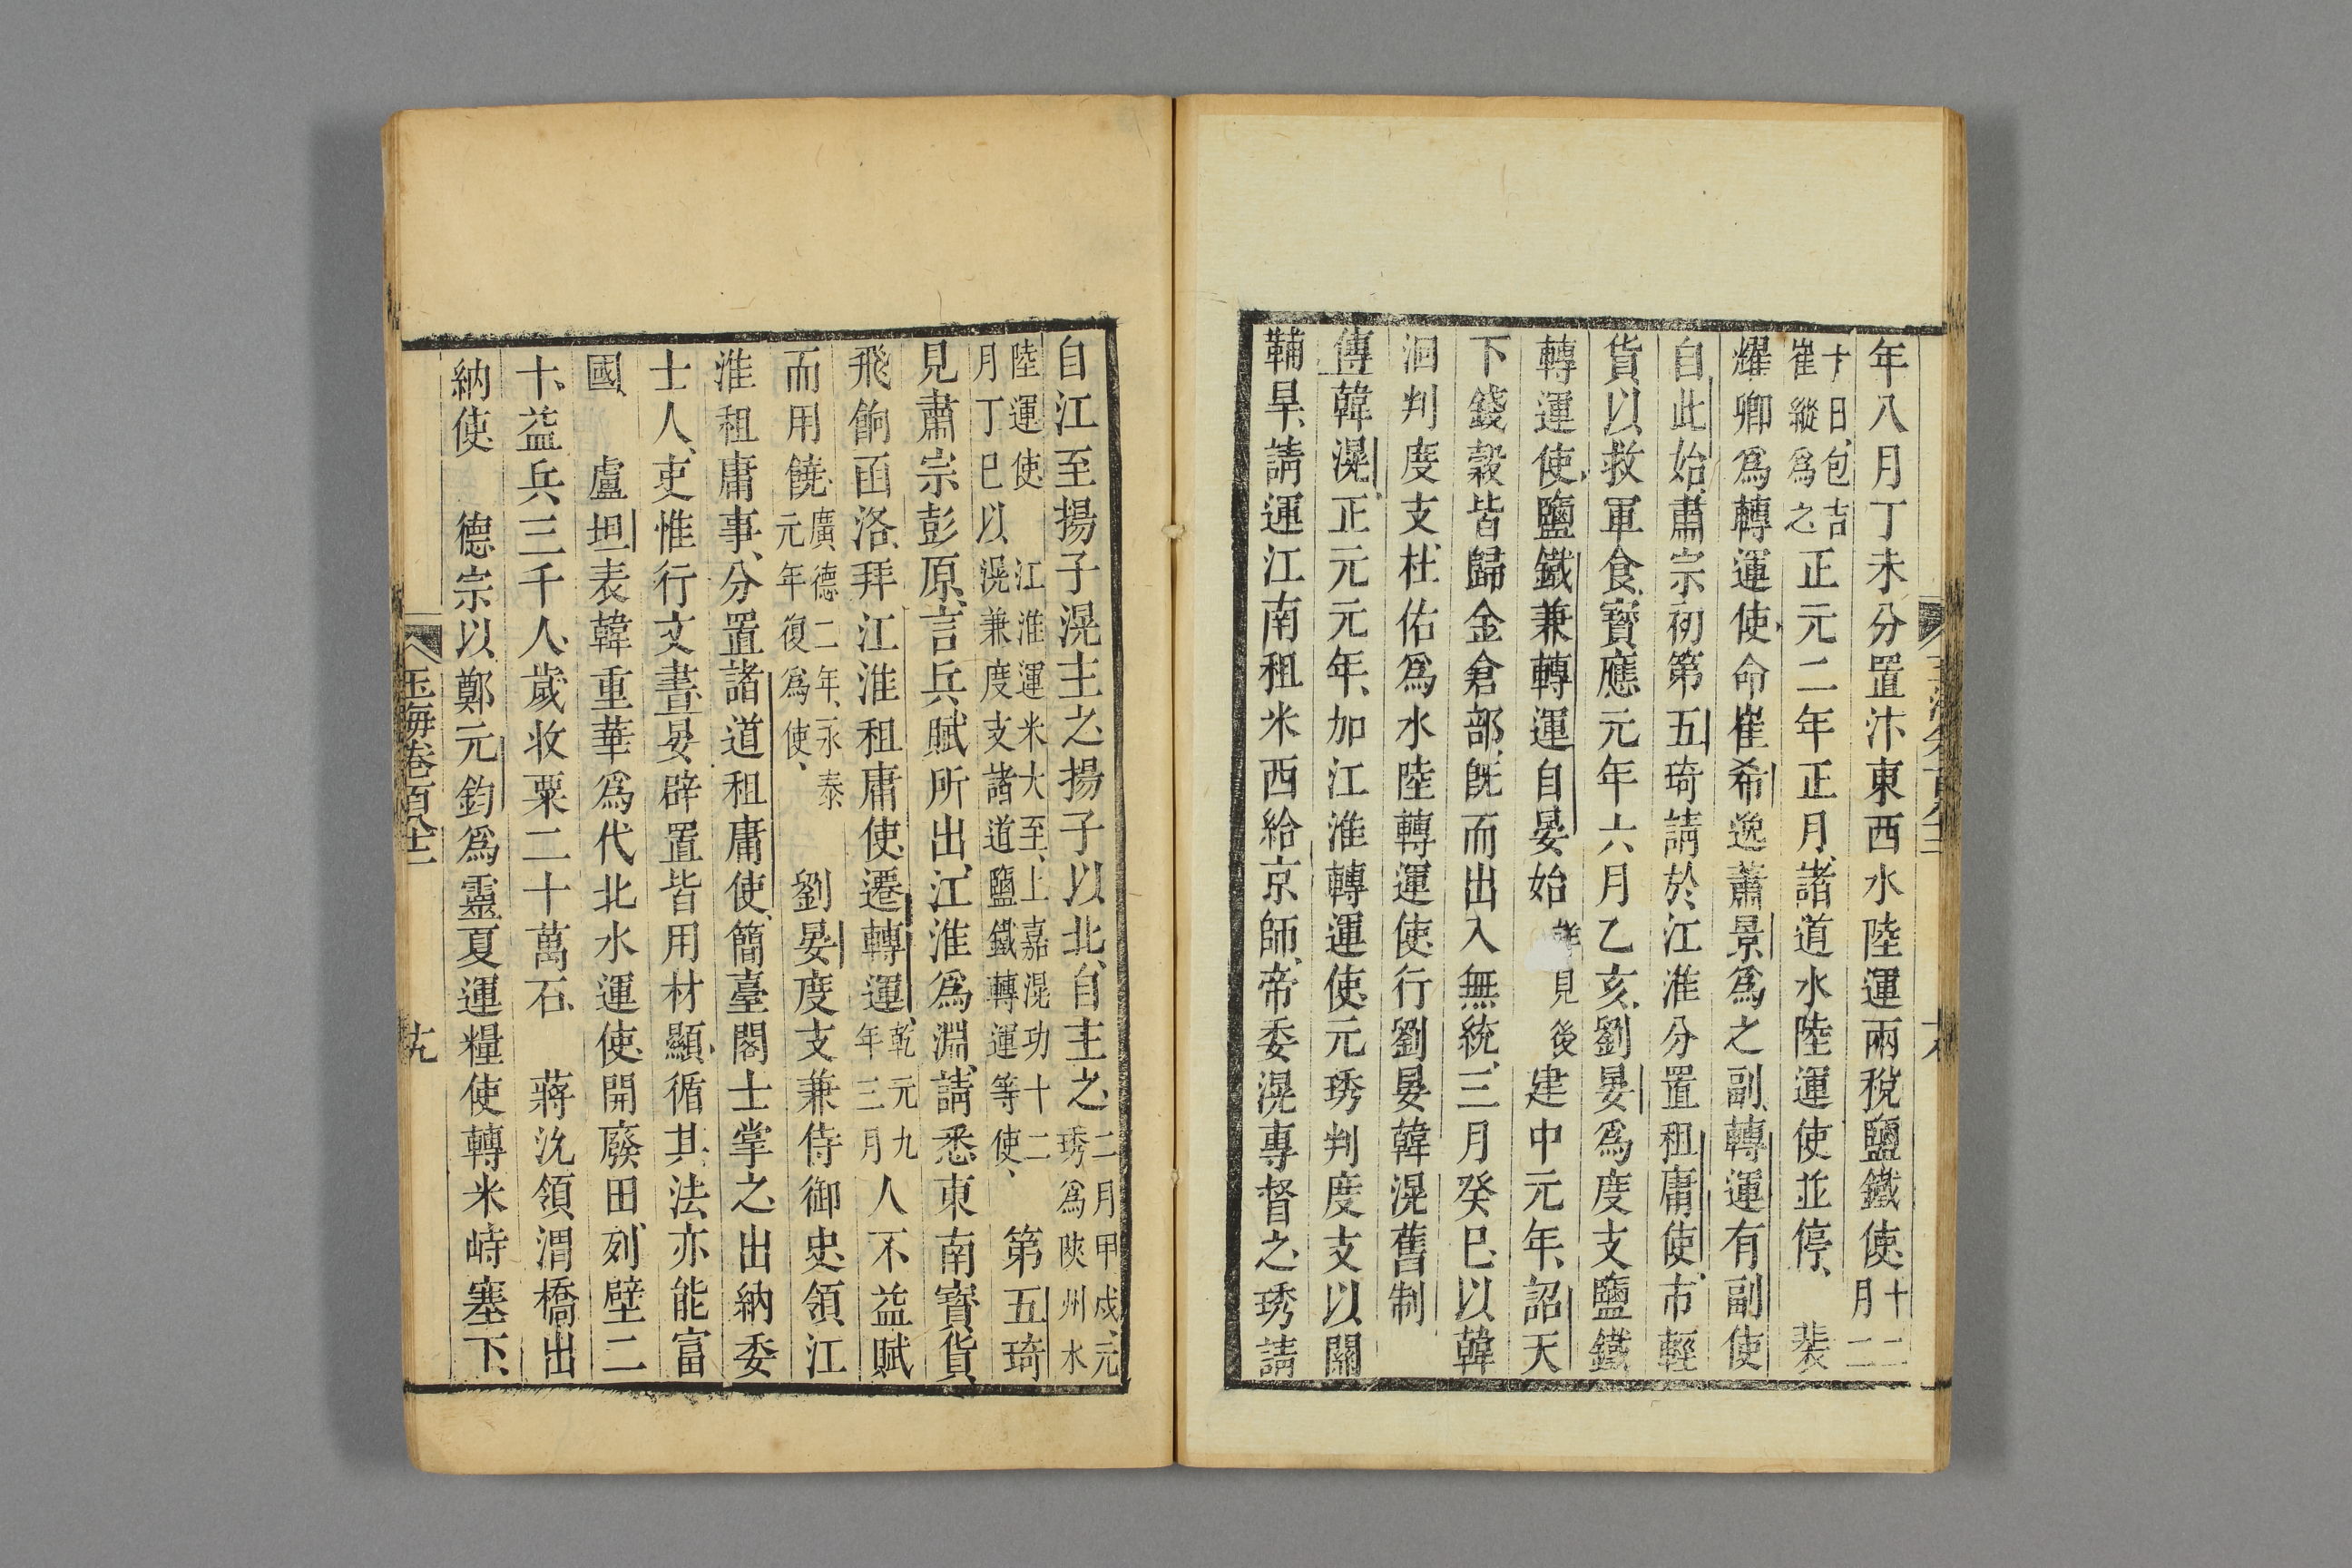 年八月丁未分置汴東西水陸運兩稅鹽鐵使十二月二
十日包吉崔縱爲之正元二年正月諸道水陸運使並停　裴
耀卿爲轉運使命崔希逸蕭景爲之副轉運有副使
自此始肅宗初第五琦請於江淮分置租庸使市輕
貨以救軍食寶應元年六月乙亥劉晏爲度支鹽鐵
轉運使鹽鐵兼轉運自晏始　見後　建中元年詔天
下錢穀皆歸金倉部旣而出入無統三月癸巳以韓
洄判度支杜佑爲水陸轉運使行劉晏韓滉舊制
傳韓滉正元元年加江淮轉運使元琇判度支以關
輔旱請運江南租米西給京師帝委滉專督之琇請
玉海卷百八十二　十八
自江至揚子滉主之揚子以北自主之二月甲戌元琇爲陝州水
陸運使　江淮運米大至上嘉滉功十二月丁巳以滉兼度支諸道鹽鐵轉運等使　第五琦
見肅宗彭原言兵賦所出江淮爲淵請悉東南寶貨
飛餉函洛拜江淮租庸使遷轉運乾元九年三月人不益賦
而用饒廣德二年永泰元年復爲使　劉晏度支兼侍御史領江
淮租庸事分置諸道租庸使簡臺閣士掌之出納委
士人吏惟行文書晏辟置皆用材顯循其法亦能富
國　盧坦表韓重華爲代北水運使開廢田列壁二
十益兵三千人歲收粟二十萬石　蔣沇領渭橋出
納使　德宗以鄭元鈞爲靈夏運糧使轉米峙塞下
玉海卷百八十二　十九